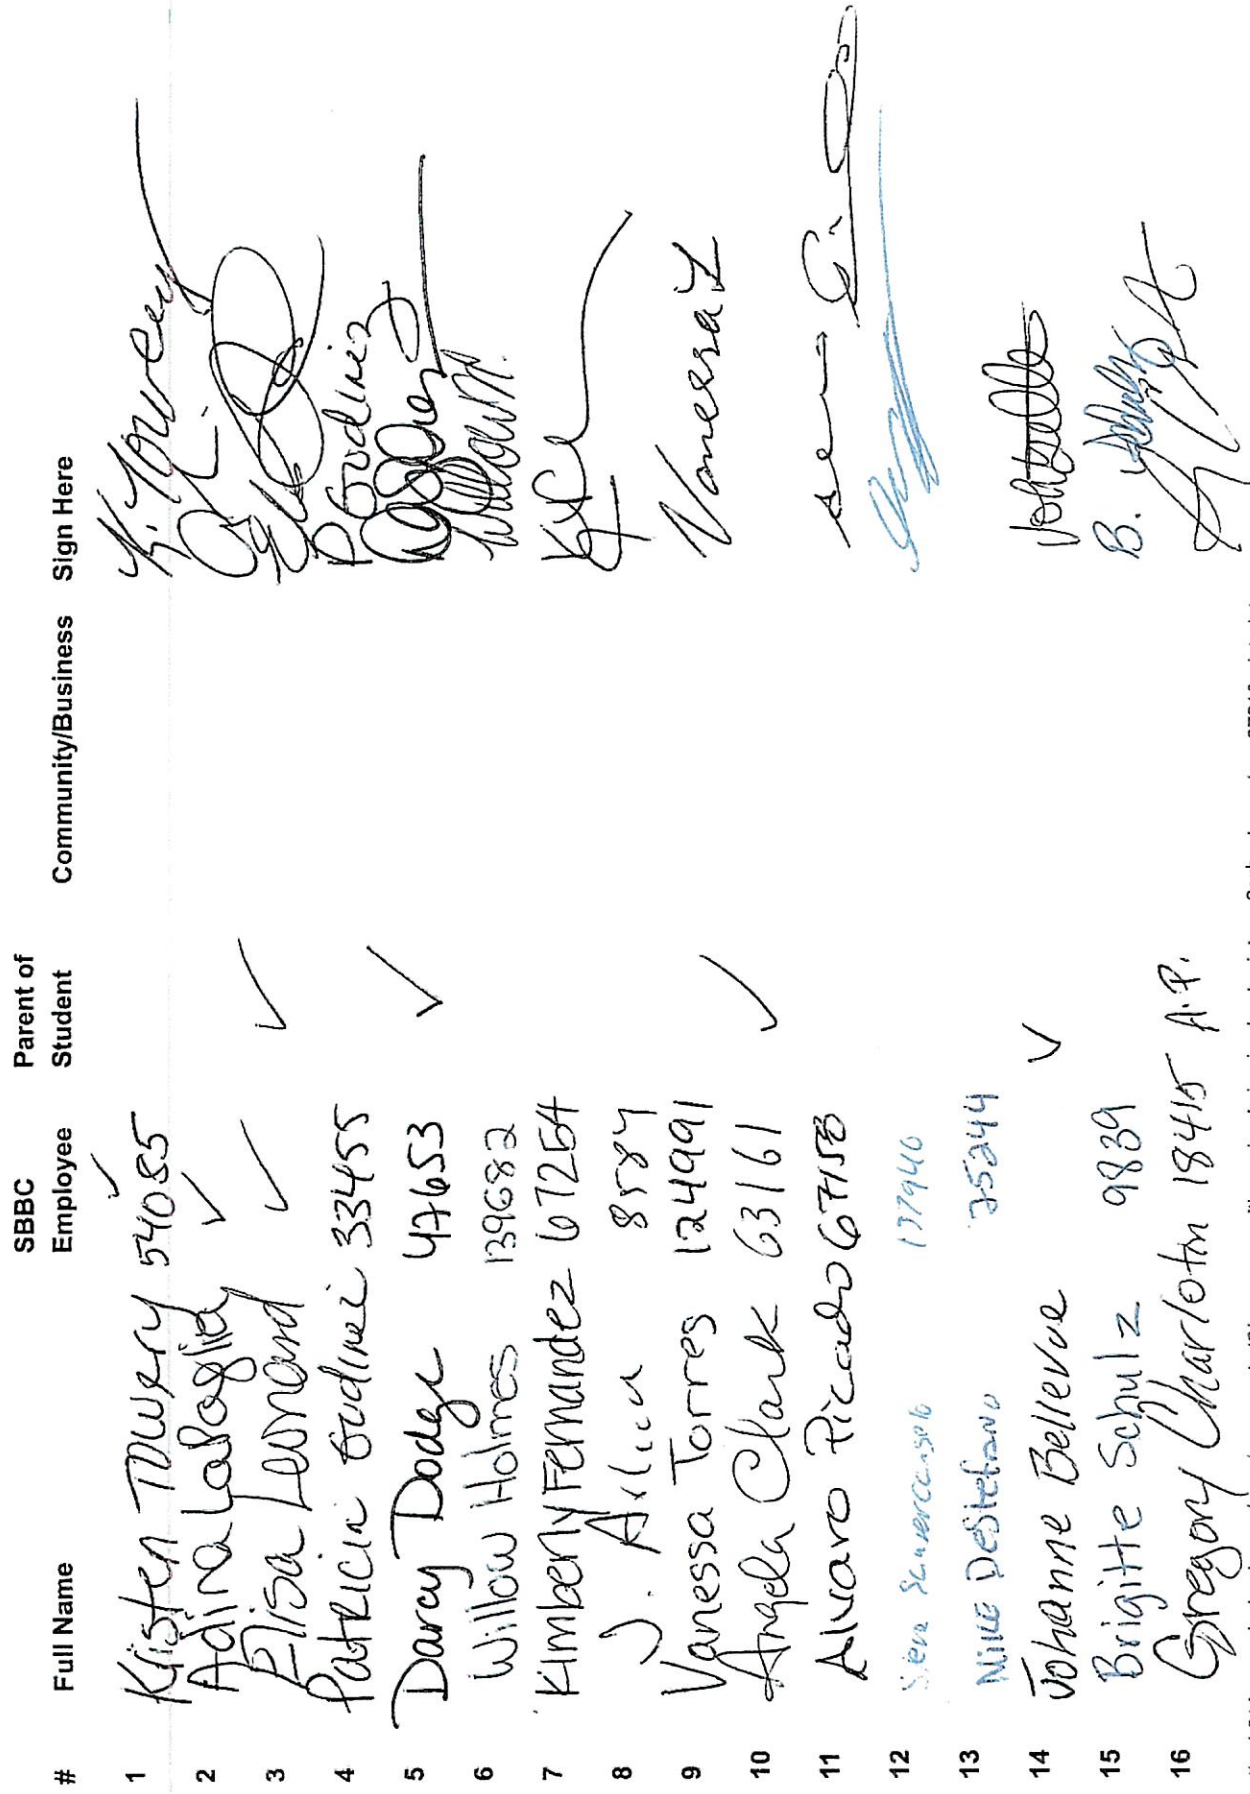 # Full Name SBBC Employee Parent of Student Community/Business Sign Here
1 Kristen Towery 54085 ✓ K. Towery
2 Adina LaPaglia ✓
3 Elisa Leonard ✓ ✓
4 Patricia Godinez 33455 P Godinez
5 Darcy Dodge 47653 ✓
6 Willow Holmes 139682
7 Kimberly Fernandez 67254
8 J. 8587
9 Vanessa Torres 124991 Vanessa T
10 Angela Clark 63161 ✓
11 Alvaro Picado 67158
12 137940
13 Mike DeStefano 75244
14 Johanne Bellevue ✓
15 Brigitte Schulz 9839 B.
16 Gregory Charlotin 18415 A.P.